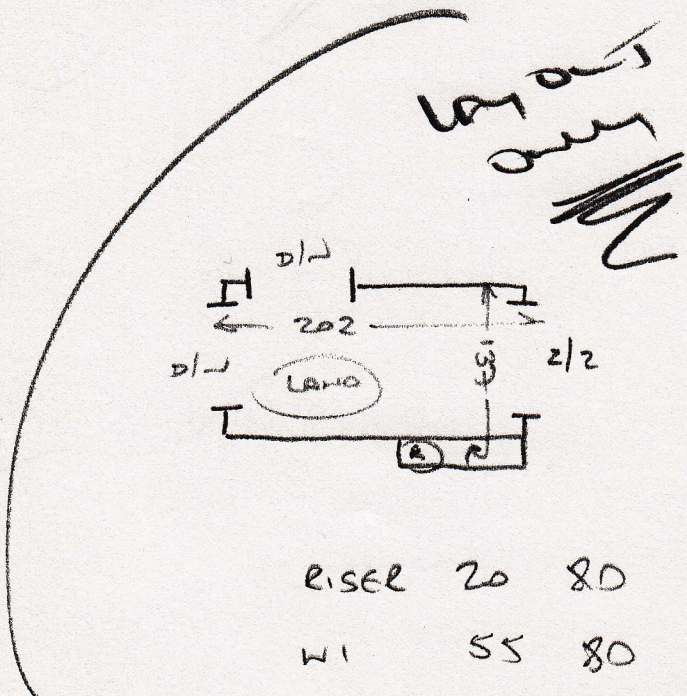 Lay out
only
D/W
202
D/W
LAND
137
2/2
R
RISER 20 80
W1 55 80